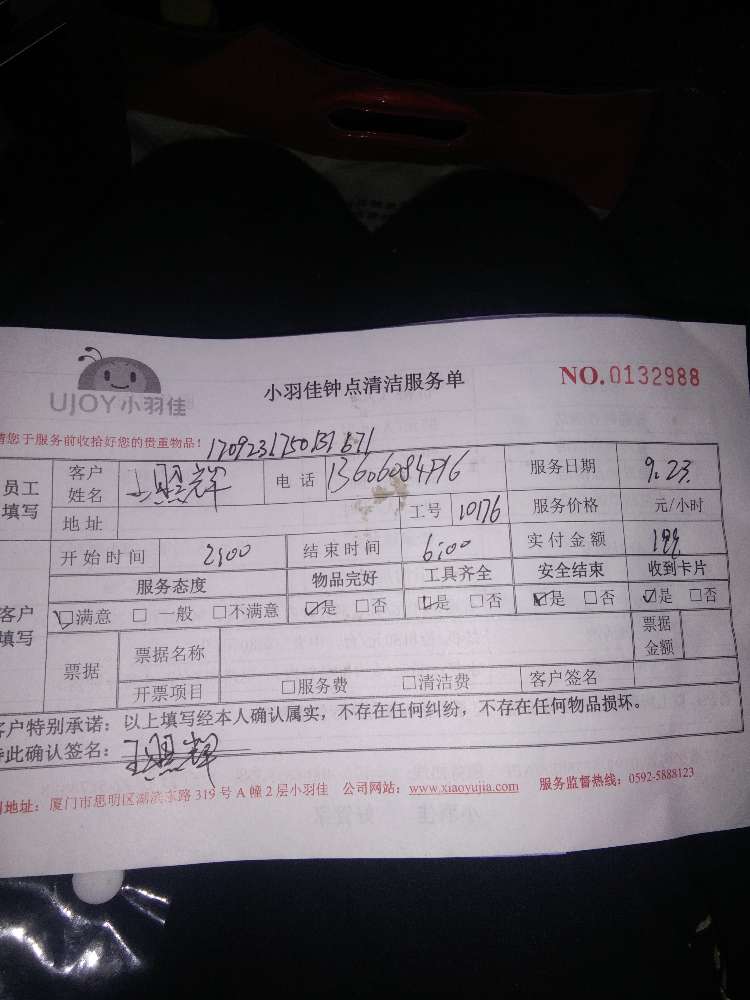 UJOY小羽佳
小羽佳钟点清洁服务单
NO.0132988
请您于服务前收拾好您的贵重物品！
员工填写 客户姓名 王照辉 电话 服务日期 9.23.
地址 工号 10176 服务价格 元/小时
开始时间 2:00 结束时间 6:00 实付金额 199
客户填写 服务态度 物品完好 工具齐全 安全结束 收到卡片
☑满意 □一般 □不满意 ☑是 □否 ☑是 □否 ☑是 □否 ☑是 □否
票据 票据名称 票据金额
开票项目 □服务费 □清洁费 客户签名
客户特别承诺：以上填写经本人确认属实，不存在任何纠纷，不存在任何物品损坏。
特此确认签名：王照辉
地址：厦门市思明区湖滨东路319号A幢2层小羽佳 公司网站：www.xiaoyujia.com 服务监督热线：0592-5888123